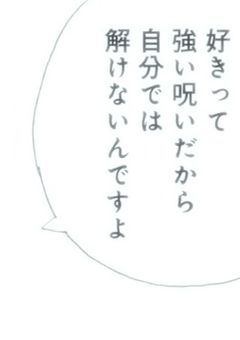 好きって
強い呪いだから
自分では
解けないんですよ